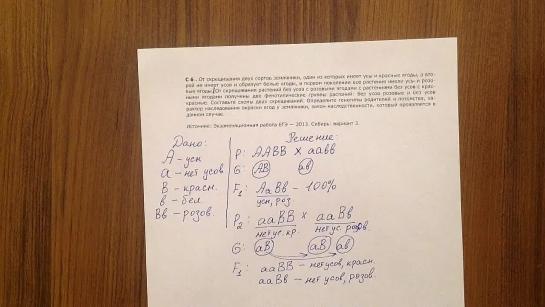 С 6 . От скрещивания двух сортов земляники, один из которых имеет усы и красные ягоды, а вто-
рой не имеет усов и образует белые ягоды, в первом поколении все растения имели усы и розо-
вые ягоды. От скрещивания растений без усов с розовыми ягодами с растениями без усов с крас-
ными ягодами получены две фенотипические группы растений: без усов розовые и без усов
красные. Составьте схемы двух скрещиваний. Определите генотипы родителей и потомства, ха-
рактер наследования окраски ягод у земляники, закон наследственности, который проявляется в
данном случае.
Источник: Экзаменационная работа ЕГЭ — 2013. Сибирь: вариант 3.
Дано:
А - усы
а - нет усов.
В - красн.
в - бел.
Вв - розов.
Решение:
P: ААВВ х аавв
G: АВ ав
F₁ АаВв - 100%
усы, роз.
P₂ ааВВ х ааВв
нет ус. кр. нет ус. розов.
G: аВ аВ ав
F₁ ааВВ - нет усов, красн.
ааВв - нет усов, розов.